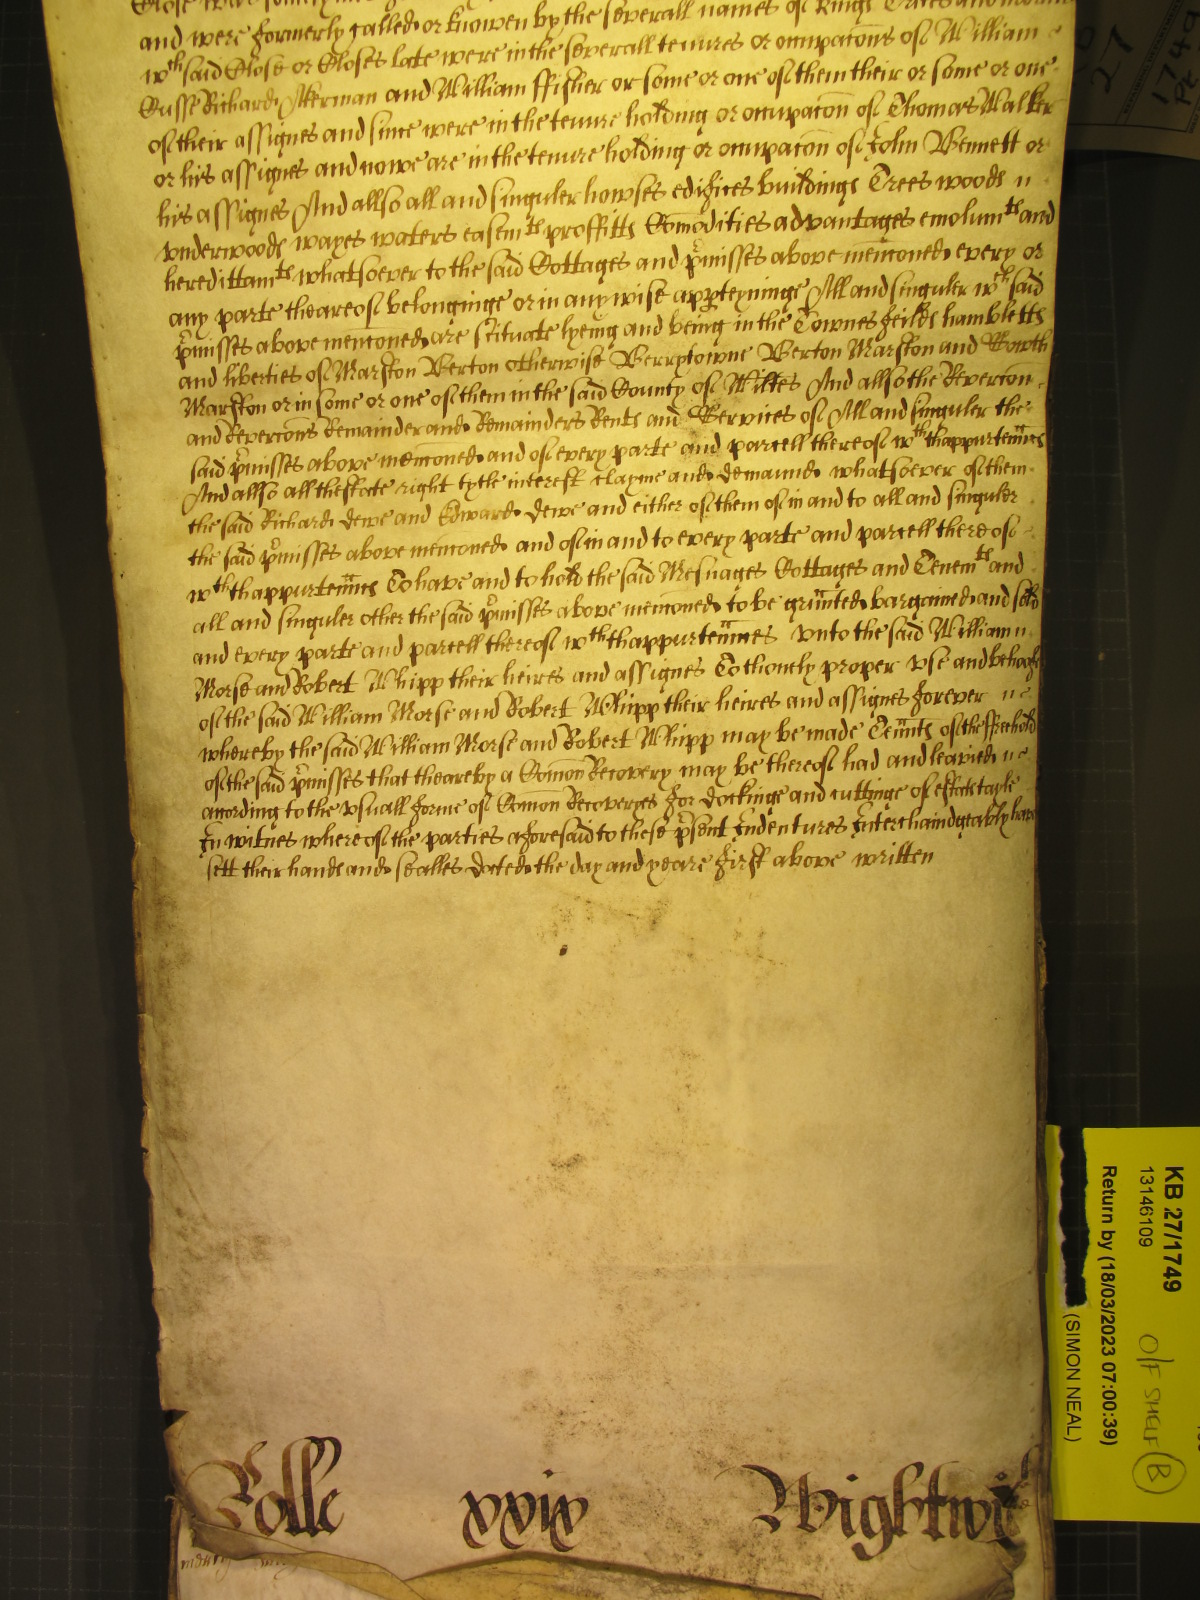 and were formerly called or knowen by the severall names of Kings
wth said Close or Closes late were in the severall tenures or occupacōns of William
Cusse Richard Akerman and William ffisher or some or one of them their or some or one
of their assignes and since were in the tenure holding or occupacōn of Thomas Walker
or his assignes and nowe are in the tenure holding or occupacōn of John Bennett or
his assignes And allso all and singuler howses edifices buildings Trees woods
vnderwoods wayes waters easemts proffitts Comōdities advantages emolumts and
heredittamts whatsoever to the said Cottages and p̄misses above menc̄oned every or
any parte theareof belonginge or in any wise apperteyninge All and singuler wch said
p̄misses above menc̄oned are scituate lyeing and being in the Townes feilds hambletts
and liberties of Marston Berton otherwise Berrytowne Berton Marston and South
Marston or in some or one of them in the said County of Wiltes And allso the Revercōn
and Revercōns Remainder and Remainders Rents and Services of All and singuler the
said p̄misses above menc̄oned and of every parte and parcell thereof wth thappurtenn̄cs
And allso all thestate right tytle interest clayme and demaund whatsoever of them
the said Richard Dewe and Edward Dewe and either of them of in and to all and singuler
the said p̄misses above menc̄oned and of in and to every parte and parcell thereof
wth thappurtenn̄cs To have and to hold the said Mesuages Cottages and Tenemts and
all and singuler other the said p̄misses above menc̄oned to be grūnted bargained and sold
and every parte and parcell thereof wth thappurtenn̄ces vnto the said William
Morse and Robert Whipp their heires and assignes To thonely proper vse and behoofe
of the said William Morse and Robert Whipp their heires and assignes forever
whereby the said William Morse and Robert Whipp may be made Tenn̄ts of the ffreehold
of the said p̄misses that theareby a Comōn Recovery may be thereof had and leavied
according to the vsuall forme of Comōn Recoveryes for dockinge and cuttinge of estates tayle
In witnes whereof the parties aforesaid to these p̄sent Indentures Interchaindgeably have
sett their hands and sealles dated the day and yeare first above written
Rolle xxix Wightwi
KB 27/1749
13146109
Return by (18/03/2023 07:00:39)
(SIMON NEAL)
O/F SHELF B
27
1749